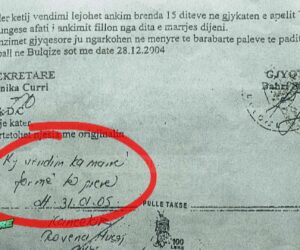 ler ketij vendimi lejohet ankim brenda 15 diteve ne gjykaten e apelit T
ungese afati i ankimit fillon nga dita e marrjes dijeni.
nzimet gjyqesore ju ngarkohen ne menyre te barabarte paleve te padit
ball ne Bulqize sot me date 28.12.2004
EKRETARE
GJYQ
nika Curri
K-D.C
je kater
rtetohet njesia me origjinalin
Ky vendim ka marrë
formë të prerë
dt. 31.01.05.
PULLE TAKSE
Rovena
100